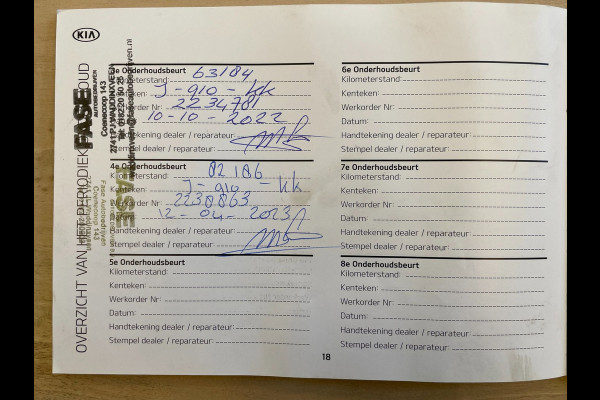 KIA
OVERZICHT VAN HET PERIODIEKE
FASE
AUTOBEDRIJVEN
Coenecoop 143
2741 PJ WADDINXVEEN
e Onderhoudsbeurt
Kilometerstand: 63184
Kenteken: J-910-KK
Werkorder Nr: 2234781
Datum: 10-10-2022
Handtekening dealer / reparateur:
Stempel dealer / reparateur:
4e Onderhoudsbeurt
Kilometerstand: 82186
Kenteken: J-910-KK
Werkorder Nr: 2230863
Datum: 12-04-2023
Handtekening dealer / reparateur:
Stempel dealer / reparateur:
5e Onderhoudsbeurt
Kilometerstand:
Kenteken:
Werkorder Nr:
Datum:
Handtekening dealer / reparateur:
Stempel dealer / reparateur:
6e Onderhoudsbeurt
Kilometerstand:
Kenteken:
Werkorder Nr:
Datum:
Handtekening dealer / reparateur:
Stempel dealer / reparateur:
7e Onderhoudsbeurt
Kilometerstand:
Kenteken:
Werkorder Nr:
Datum:
Handtekening dealer / reparateur:
Stempel dealer / reparateur:
8e Onderhoudsbeurt
Kilometerstand:
Kenteken:
Werkorder Nr:
Datum:
Handtekening dealer / reparateur:
Stempel dealer / reparateur:
18